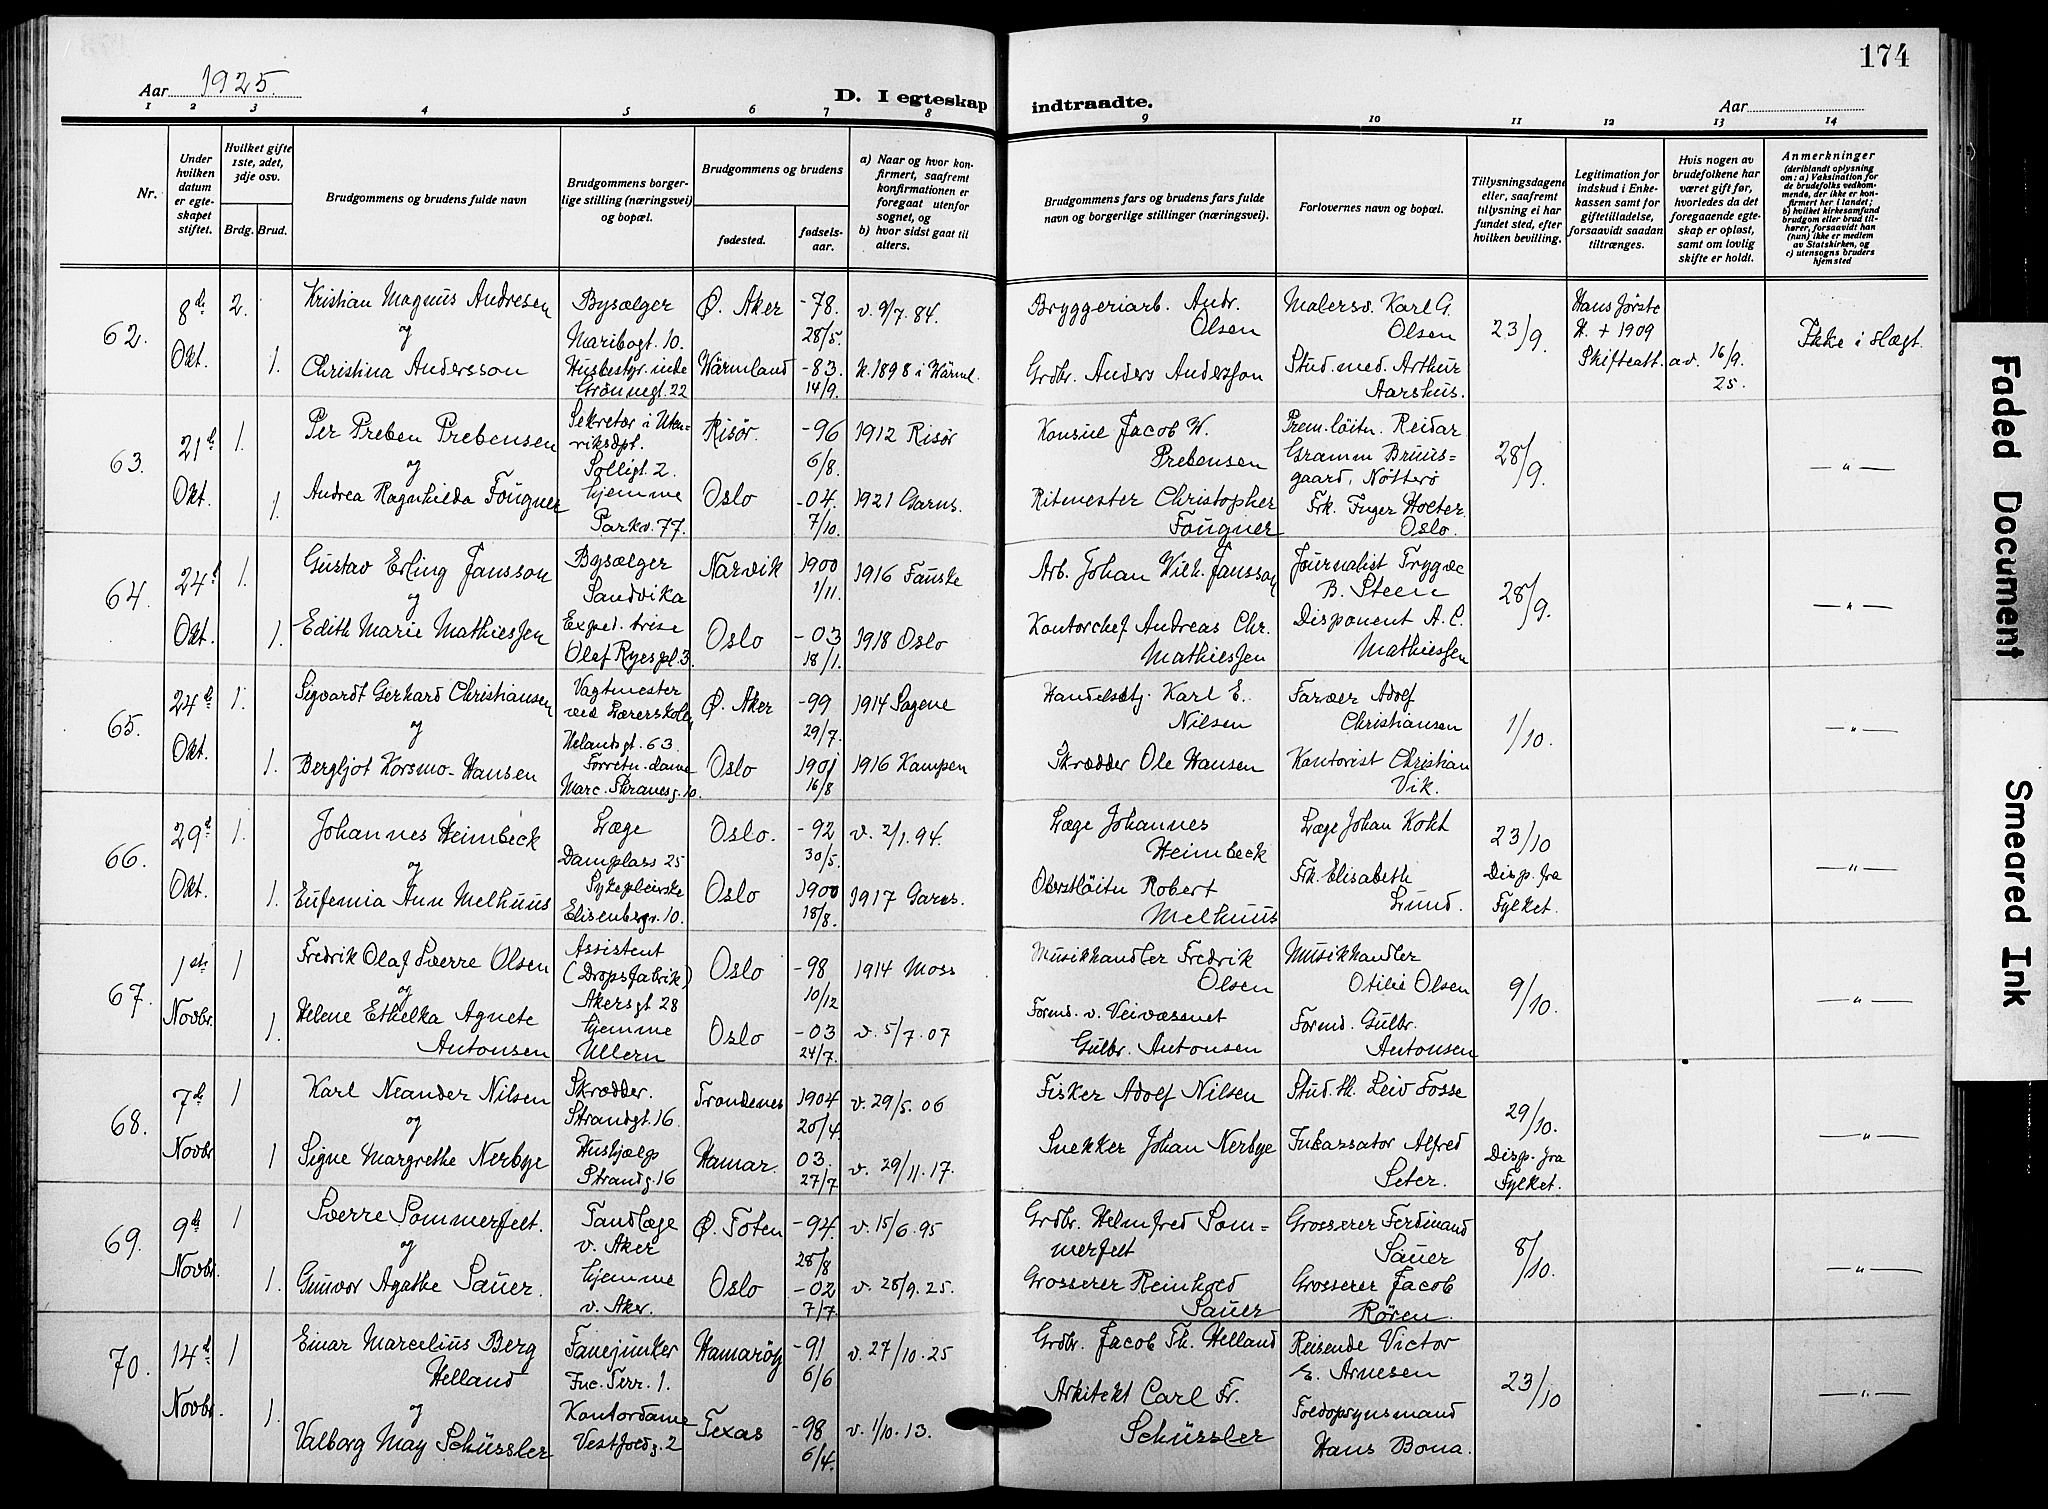 174
Aar 1925.
D. I egteskap indtraadte.
Aar
1 2 3 4 5 6 7 8 9 10 11 12 13 14
Nr.
Under hvilken datum er egteskapet stiftet.
Hvilket gifte 1ste, 2det, 3dje osv.
Brdg. Brud.
Brudgommens og brudens fulde navn
Brudgommens borgerlige stilling (næringsvei) og bopæl.
Brudgommens og brudens
fødested.
fødselsaar.
a) Naar og hvor konfirmert, saafremt konfirmationen er foregaat utenfor sognet, og
b) hvor sidst gaat til alters.
Brudgommens fars og brudens fars fulde navn og borgerlige stillinger (næringsvei).
Forlovernes navn og bopæl.
Tillysningsdagene eller, saafremt tillysning ei har fundet sted, efter hvilken bevilling.
Legitimation for indskud i Enkekassen samt for giftetilladelse, forsaavidt saadan tiltrænges.
Hvis nogen av brudefolkene har været gift før, hvorledes da det foregaaende egteskap er opløst, samt om lovlig skifte er holdt.
Anmerkninger (deriblandt oplysning om: a) Vaksination for de brudefolks vedkommende, der ikke er konfirmert her i landet; b) hvilket kirkesamfund brudgom eller brud tilhører, forsaavidt han (hun) ikke er medlem av Statskirken, og c) utensogns bruders hjemsted
62.
8de Okt.
2.
1.
Kristian Magnus Andresen
og
Christina Andersson
Bysælger
Maribogt. 10.
Husbestyrinde
Grønnegt. 22
Ø. Aker
Wärmland
-78.
28/5.
-83.
14/9.
v. 9/7. 84.
k. 1898 i Wärml.
Bryggeriarb. Andr.
Olsen
Grdbr. Anders Andersson
Malersv. Karl G.
Olsen
Stud. med. Arthur
Aarshus.
23/9.
+ 1909
Skifteatt. av. 16/9.
25.
Ikke i slægt.
63.
21de Okt.
1.
1.
Per Preben Prebensen
og
Andrea Ragnhilda Fougner
Sekretær i Uten-
riksdpt.
Solligt. 2.
hjemme
Parkv. 77.
Risør.
Oslo
-96
6/8.
-04.
7/10.
1912 Risør
1921 Garns.
Konsul Jacob W.
Prebensen
Ritmester Christopher
Fougner
Prem. løitn. Reidar
Gramm Bruus-
gaard, Nøtterø
Frk. Inger Holter.
Oslo.
28/9.
— " —
64.
24de Okt.
1.
1.
Gustav Erling Jansson
og
Edith Marie Mathiessen
Bysælger
Sandvika
Exped. trise
Olaf Ryespl 3.
Narvik
Oslo
1900
1/11.
-03
18/1.
1916 Fauske
1918 Oslo
Arb. Johan Wilh. Jansson
Kontorchef Andreas Chr.
Mathiessen
Journalist Trygve
B. Steen
Disponent A. C.
Mathiessen
28/9.
— " —
65.
24de Okt.
1.
1.
Sigvardt Gerhard Christiansen
og
Bergljot Korsmo-Hansen
Vagtmester
ved Lærerskolen
Helandsgt. 63.
Forretn. dame
Marc. Thranesg. 10.
Ø. Aker
Oslo
-99
29/7.
1901
16/8
1914 Sagene
1916 Kampen
Handelsbtj. Karl E.
Nilsen
Skrædder Ole Hansen
Farver Adolf
Christiansen
Kontorist Christian
Vik.
1/10.
— " —
66.
29de Okt.
1.
1.
Johannes Heimbeck
og
Eufemia Ann Melhuus
Læge
Damplass 25
Sykepleierske
Elisenbergv. 10.
Oslo.
Oslo
-92
30/5.
1900
18/8.
v. 2/1. 94.
1917 Garns.
Læge Johannes
Heimbeck
Oberstløitn Robert
Melhuus
Læge Johan Kokt
Frk. Elisabeth
Lund.
23/10
Disp. fra
Fylket.
— " —
67.
1ste Novbr.
1
1.
Fredrik Olaf Sverre Olsen
og
Helene Ethelka Agnete
Antonsen
Assistent
(Dropsfabrik)
Akersgt 28
hjemme
Ullern
Oslo
Oslo
-98
10/12
-03
24/7.
1914 Moss
v. 5/7. 07
Musikhandler Fredrik
Olsen
Formd. v. Veivæsenet
Gulbr. Antonsen
Musikhandler
Otilie Olsen
Formd. Gulbr.
Antonsen
9/10.
— " —
68.
7de Novbr
1
1
Karl Neander Nilsen
og
Signe Margrethe Nerbye
Skrædder.
Strandgt. 16.
Hushjælp
Strandg. 16
Trondenes
Hamar.
1904
20/4.
03.
27/7
v. 29/5. 06
v. 29/11. 17.
Fisker Adolf Nilsen
Snekker Johan Nerbye
Stud. th. Leiv Fosse
Inkassator Alfred
Seter.
29/10.
Disp. fra
Fylket.
— " —
69.
9de Novbr.
1
1.
Sverre Sommerfelt.
og
Gunvor Agathe Sauer.
Tandlæge
v. Aker
hjemme
v. Aker.
Ø. Toten
Oslo
-94.
28/8
-02
7/7.
v. 15/6. 95
v. 28/9. 25.
Grdbr. Helmfred Som-
merfelt
Grosserer Reinhold
Sauer
Grosserer Ferdinand
Sauer
Grosserer Jacob
Røren.
8/10.
— " —
70.
14de Novbr.
1
1.
Einar Marcelius Berg
Helland
og
Valborg May Schüssler
Fanejunker
Inc. Terr. 1.
Kontordame
Vestfoldg. 2
Hamarøy
Texas
-91
6/6
-98
6/4.
v. 27/10. 25
v. 1/10. 13.
Grdbr. Jacob Th. Helland
Arkitekt Carl Fr.
Schüssler
Reisende Victor
E. Arnesen
Toldopsynsmand
Hans Bona.
23/10
— " —
Faded Document
Smeared Ink